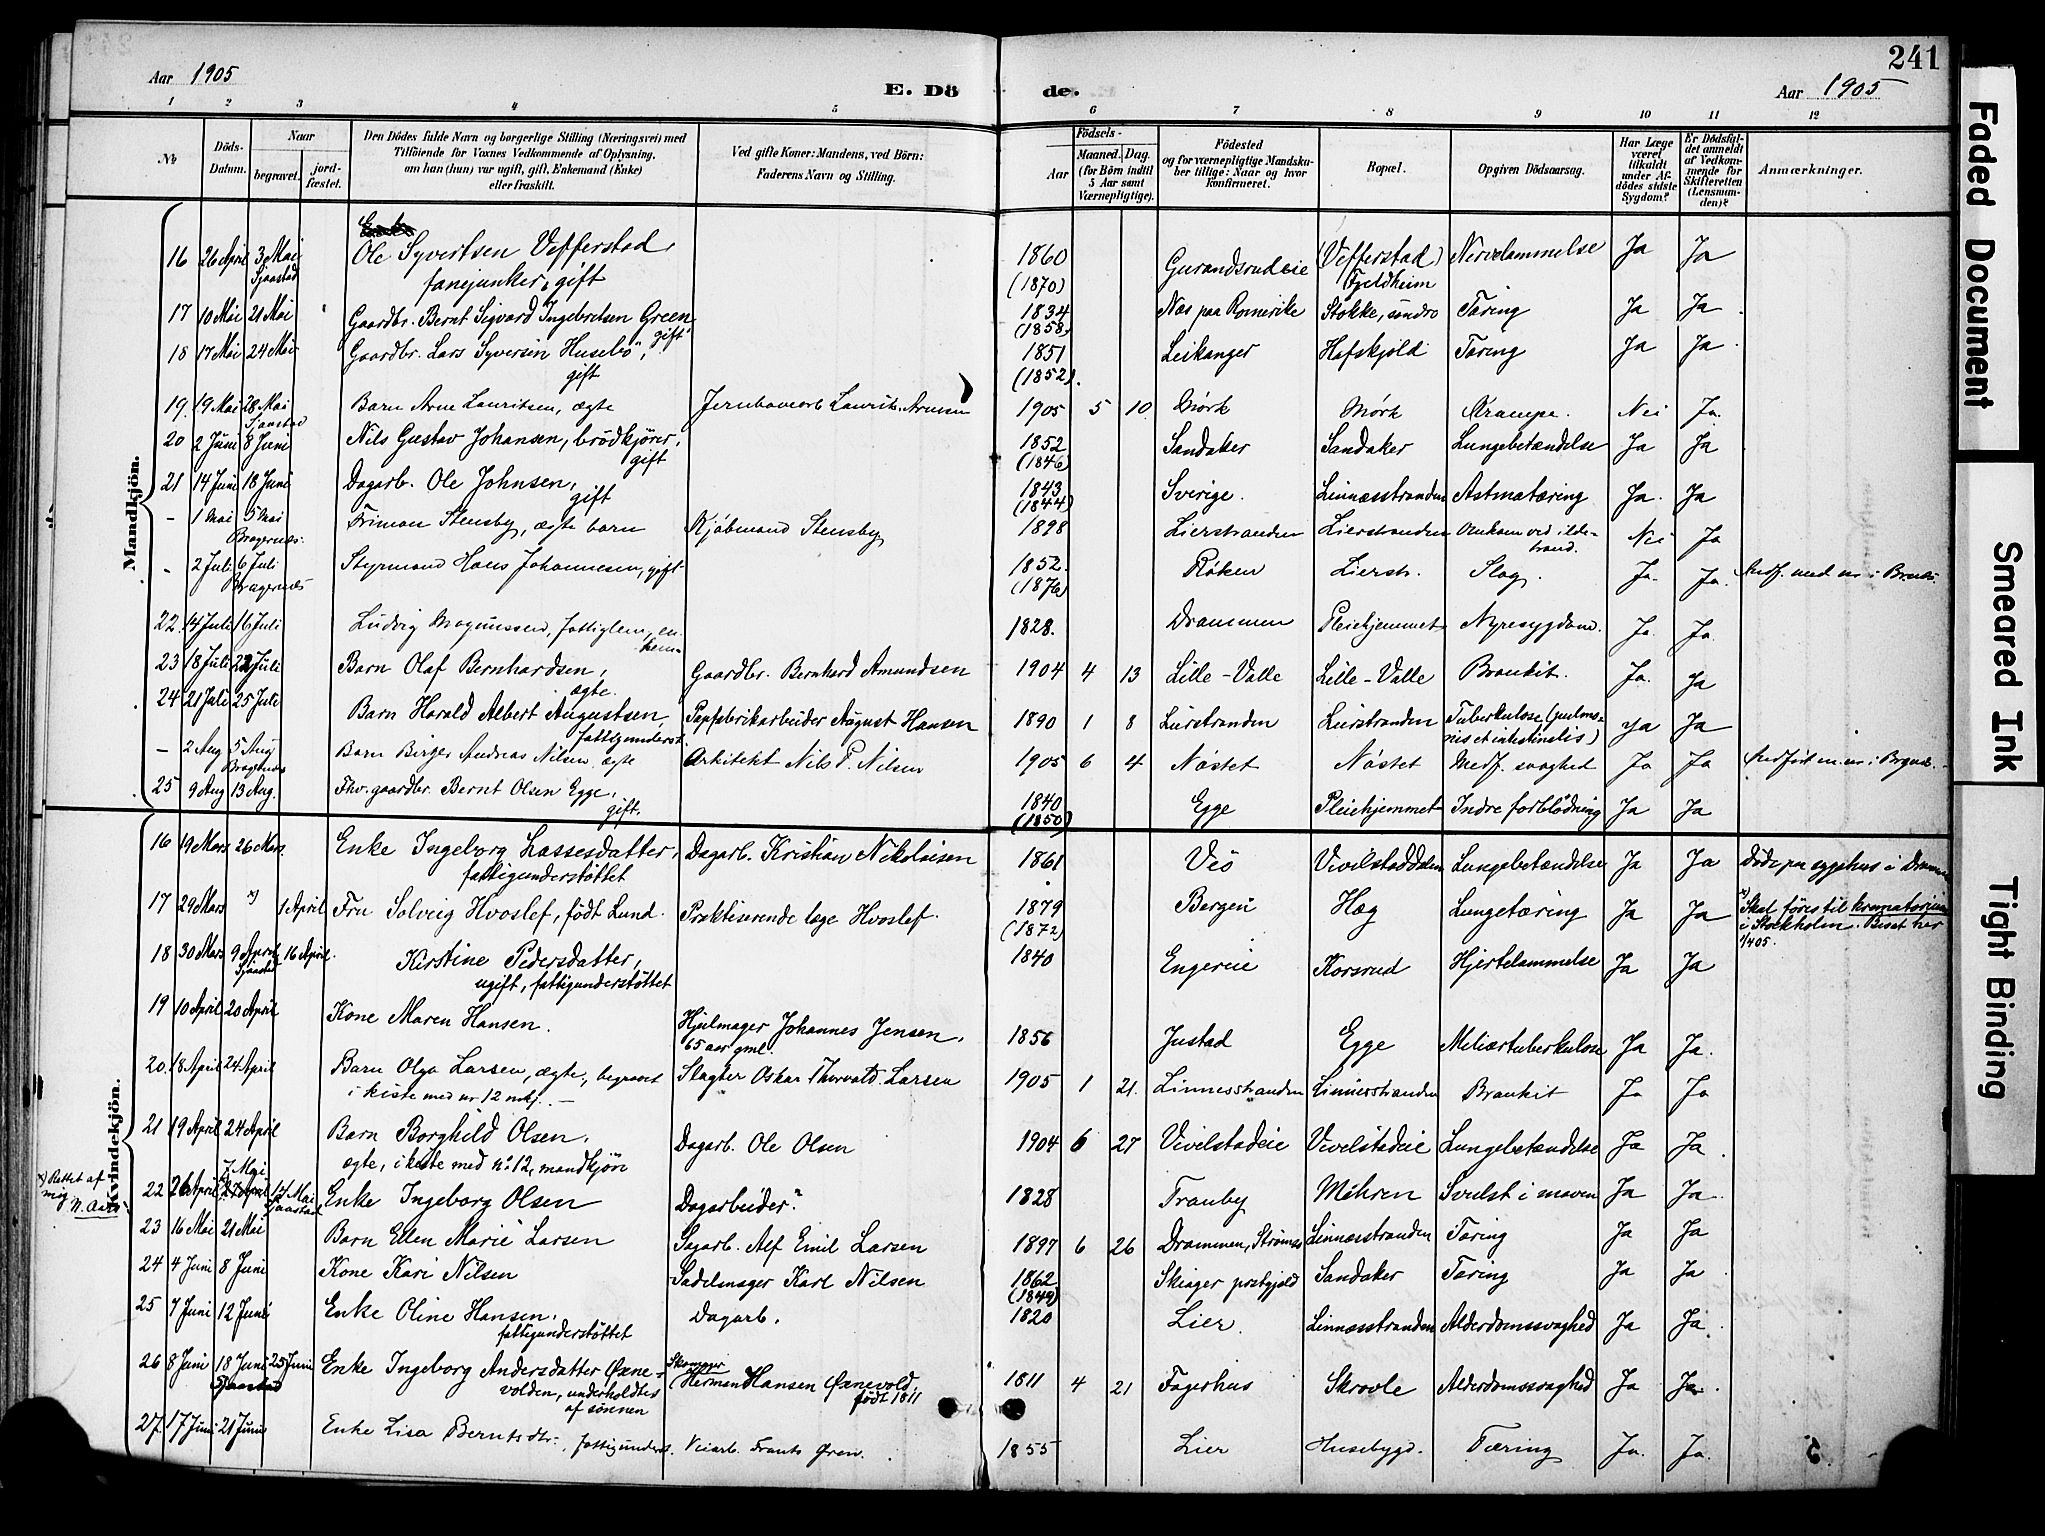 241
Aar 1905
E. Dö
de.
Aar 1905
1 2 3 4 5 6 7 8 9 10 11 12
No
Döds-
Datum.
Naar
begravet.
jord-
fæstet.
Den Dödes fulde Navn og borgerlige Stilling (Næringsvei) med
Tilföiende for Voxnes Vedkommende af Oplysning,
om han (hun) var ugift, gift, Enkemand (Enke)
eller fraskilt.
Ved gifte Koner: Mandens, ved Börn:
Faderens Navn og Stilling.
Födsels-
Aar
Maaned. Dag.
(for Börn indtil
5 Aar samt
Værnepligtige).
Födested
og for værnepligtige Mandsku-
ber tillige: Naar og hvor
konfirmeret.
Bopæl.
Opgiven Dödsaarsag.
Har Læge
været
tilkaldt
under Af-
dödes sidste
Sygdom?
Er Dödsfal-
det anmeldt
af Vedkom-
mende for
Skifteretten
(Lensman-
den)?
Anmærkninger.
Mandkjön.
16 26 April 3 Mai Ole Syvertsen Vefferstad, 1860 Gurandsrudeie (Vefferstad) Nervelammelse Ja Ja
Sjaastad fanejunker, gift (1870) Fjeldheim
17 10 Mai 21 Mai Gaardbr. Bernt Sigvard Ingebretsen Green, 1834 Næs paa Romerike Stokke, søndre Tæring Ja Ja
gift (1858)
18 17 Mai 24 Mai Gaardbr. Lars Syversen Husebö, 1851 Leikanger Hafskjold Tæring Ja Ja
gift (1852).
19. 19 Mai 28 Mai Barn Arne Lauritsen, ægte Jernbanearb Laurits Arnesen 1905 5 10 Mörk Mörk Krampe. Nei Ja.
Sjaastad
20 2 Juni 8 Juni Nils Gustav Johansen, brödkjörer, 1852 Sandaker Sandaker Lungebetændelse Ja Ja
gift (1846)
21 14 Juni 18 Juni Dagarb. Ole Johnsen, 1843 Sverige. Linnæsstranden Astmatæring Ja. Ja
gift (1844)
- 1 Mai 5 Mai Stensby, ægte barn Kjöbmand Stensby 1898 Lierstranden Lierstranden Omkom ved ilde- Nei Ja
Bragernæs. brand.
- 2 Juli 6 Juli Styrmand Hans Johannesen, gift 1852. Röken Lierstr. Slag. Ja. Ja.
Bragernæs (1876)
22. 14 Juli 16 Juli Ludvig Magnussen, fattiglem, en- 1828. Drammen Pleiehjemmet Nyresygdom. Ja. Ja.
kem-
23 18 Juli 23 Juli Barn Olaf Bernhardsen, Gaardbr. Bernhard Amundsen 1904 4 13 Lille-Valle Lille-Valle Bronkit. Ja. Ja
ægte.
24 21 Juli 25 Juli Barn Harald Albert Augustsen, Papfabrikarbeider August Hansen 1890 1 8 Lierstranden Lierstranden Tuberkulose (pulmo- Ja Ja
fattigunderst. nis et intestinalis)
- 2 Aug 5 Aug Barn Birger Andreas Nilsen ægte Arkitekt Nils P. Nilsen 1905 6 4 Nöstet Nöstet Medf. svaghed Ja Ja
Bragernæs
25 9 Aug 13 Aug. Fhv. gaardbr. Bernt Olsen Egge, 1840 Egge Pleiehjemmet Indre forblödning Ja Ja
gift. (1850)
Kvindekjön.
16 19 Mars 26 Mars. Enke Ingeborg Lassesdatter, Dagarb. Kristian Nikolaisen 1861 Veö Lungebetændelse Ja Ja Döde paa sygehus i
fattigunderstöttet
17 29 Mars x) 1 April Fru Solveig Hvoslef, födt Lund. Praktiserende læge Hvoslef. 1879 Bergen Hæg Lungetæring Ja Ja x) Skal föres til krematorium
(1872) i Stockholm. Biset her
1/4 05.
18 30 Mars 9 April 16 April. Kirstine Pedersdatter, 1840 Engereie Korsrud Hjertelammelse Ja Ja
Sjaastad ugift, fattigunderstöttet
19 10 April 20 April Kone Maren Hansen. Hjulmager Johannes Jensen, 1856 Justad Egge Miliærtuberkulose Ja Ja.
65 aar gml.
20. 18 April 24 April Barn Olga Larsen, ægte, begravet Slagter Oskar Thorvald Larsen 1905 1 21. Linnesstranden Linnesstranden Bronkit Ja Ja
i kiste med nr 12 mkj. -
21 19 April 24 April Barn Borghild Olsen, Dagarb. Ole Olsen 1904 6 27 Vivelstadeie Vivelstadeie Lungebetændelse Ja Ja.
ægte, i kiste med no 12, mandkjön
7 Mai
x) Rettet af
mig
22 26 April 27 April 14 Mai Enke Ingeborg Olsen Dagarbeider? 1828 Tranby Mehren Svulst i maven Ja Ja
Sjaastad
23 16 Mai 21 Mai Barn Ellen Marie Larsen Sagarb. Alf Emil Larsen 1897 6 26 Drammen, Strömsö Linnæsstranden Tæring Ja Ja
24 4 Juni 8 Juni Kone Kari Nilsen Sadelmager Karl Nilsen 1862 Skiager prstgjeld Sandaker Tæring Ja Ja
(1849)
25 7 Juni 12 Juni Enke Oline Hansen, Dagarb. 1820 Lier. Linnæsstranden Alderdomssvaghed Ja Ja.
fattigunderstöttet
26 8 Juni 18 Juni 25 Juni Enke Ingeborg Andersdatter Öxne- Skomager 1811 4 21 Fagerhus Skrovle Alderdomssvaghed Ja Ja.
Sjaastad volden, underholdtes Herman Hansen Öxnevold
af sönnen födt 1811
27. 17 Juni 21 Juni Enke Lisa Berntsdtr., fattigunderst. Veiarb. Frants Gren. 1855 Lier Husebygd. Tæring Ja. Ja.
Faded Document
Smeared Ink
Tight Binding